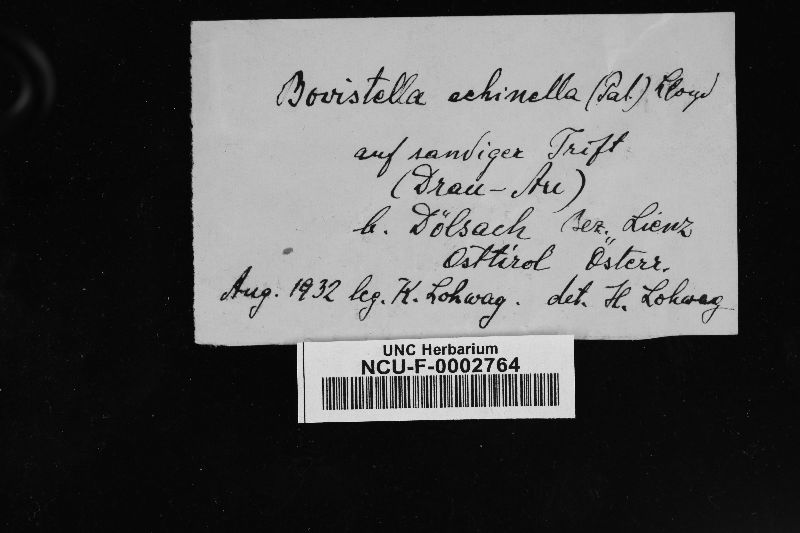 Bovistella echinella (Pat.) Lloyd
auf sandiger Trift
(Drau-Au)
b. Dölsach Bez. Lienz
Osttirol Österr.
Aug. 1932 leg. K. Lohwag. det. H. Lohwag
UNC Herbarium
NCU-F-0002764